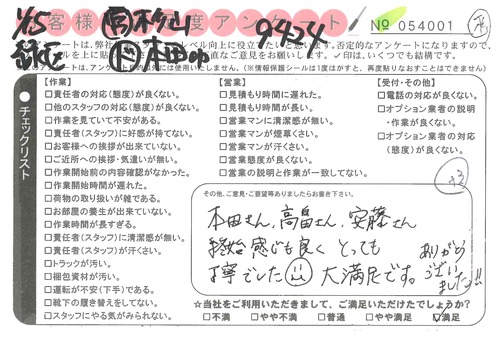 1/15 営杉山 度アンケート 9424 No 054001
ド本田
ートは、弊社 レベル向上に役立てたいと思います。否定的なアンケートになりますので、
ールを上に貼 直なご意見をお願いします。✓印は、いくつでも結構です。
トは、アンケート以外には使用いたしません。(※情報保護シールは1度はがすと、再度貼りなおすことはできません)
チェックリスト
【作業】
□責任者の対応(態度)が良くない。
□他のスタッフの対応(態度)が良くない。
□作業を見ていて不安がある。
□責任者(スタッフ)に好感が持てない。
□お客様への挨拶が出来ていない。
□ご近所への挨拶・気遣いが無い。
□作業開始前の内容確認がなかった。
□作業開始時間が遅れた。
□荷物の取り扱いが雑である。
□お部屋の養生が出来ていない。
□作業時間が長すぎる。
□責任者(スタッフ)に清潔感が無い。
□責任者(スタッフ)が汗くさい。
□トラックが汚い。
□梱包資材が汚い。
□運転が不安(下手)である。
□靴下の履き替えをしてない。
□スタッフにやる気がみられない。
【営業】
□見積もり時間に遅れた。
□見積もり時間が長い。
□営業マンに清潔感が無い。
□営業マンが煙草くさい。
□営業マンが汗くさい。
□営業態度が良くない。
□営業の説明と作業が一致してない。
【受付・その他】
□電話の対応が良くない。
□オプション業者の説明
・作業が良くない。
□オプション業者の対応
(態度)が良くない。
その他、ご意見・ご要望等ありましたらお書き下さい。
本田さん、高畠さん、安藤さん
終始感じも良く とっても
丁寧でした 大満足です。
ありがとう
ござい
ました!!
☆当社をご利用いただきまして、ご満足いただけたでしょうか?
□不満 □やや不満 □普通 □やや満足 ☑満足